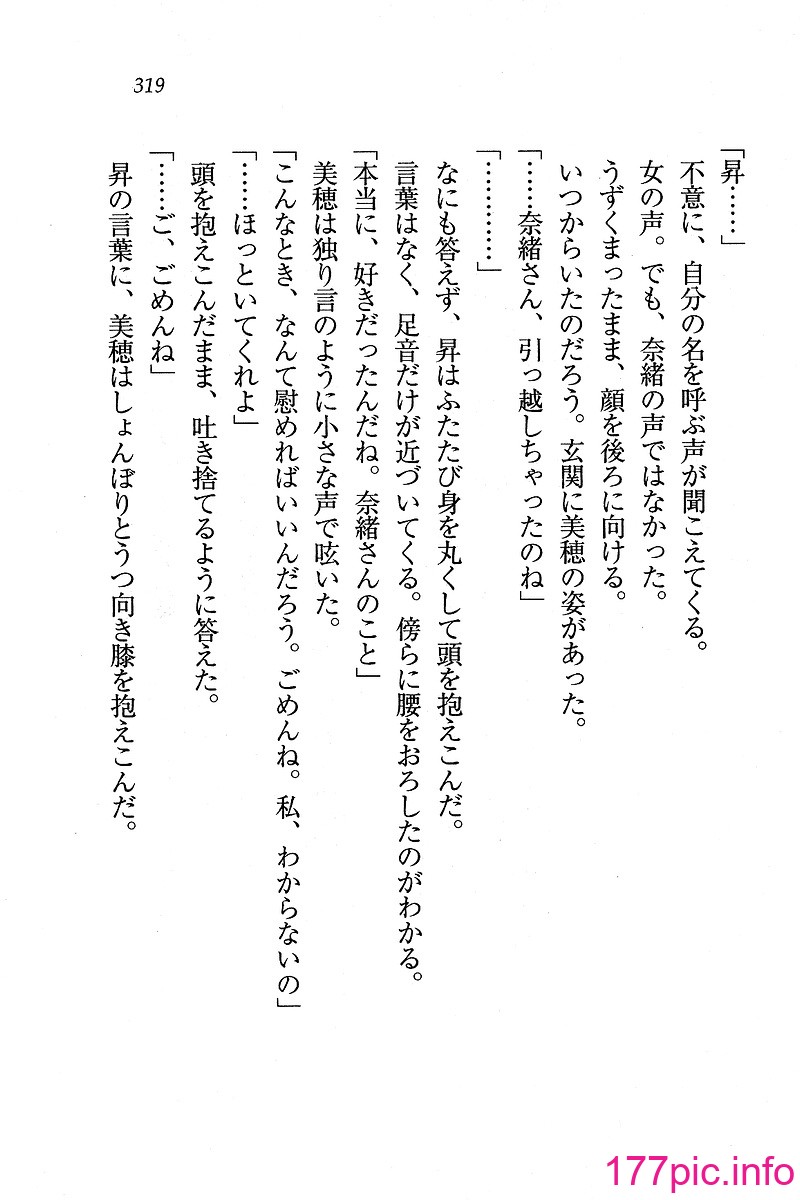 319
「昇……」
不意に、自分の名を呼ぶ声が聞こえてくる。
女の声。でも、奈緒の声ではなかった。
うずくまったまま、顔を後ろに向ける。
いつからいたのだろう。玄関に美穂の姿があった。
「……奈緒さん、引っ越しちゃったのね」
「…………」
なにも答えず、昇はふたたび身を丸くして頭を抱えこんだ。
言葉はなく、足音だけが近づいてくる。傍らに腰をおろしたのがわかる。
「本当に、好きだったんだね。奈緒さんのこと」
美穂は独り言のように小さな声で呟いた。
「こんなとき、なんて慰めればいいんだろう。ごめんね。私、わからないの」
「……ほっといてくれよ」
頭を抱えこんだまま、吐き捨てるように答えた。
「……ご、ごめんね」
昇の言葉に、美穂はしょんぼりとうつ向き膝を抱えこんだ。
177pic.info